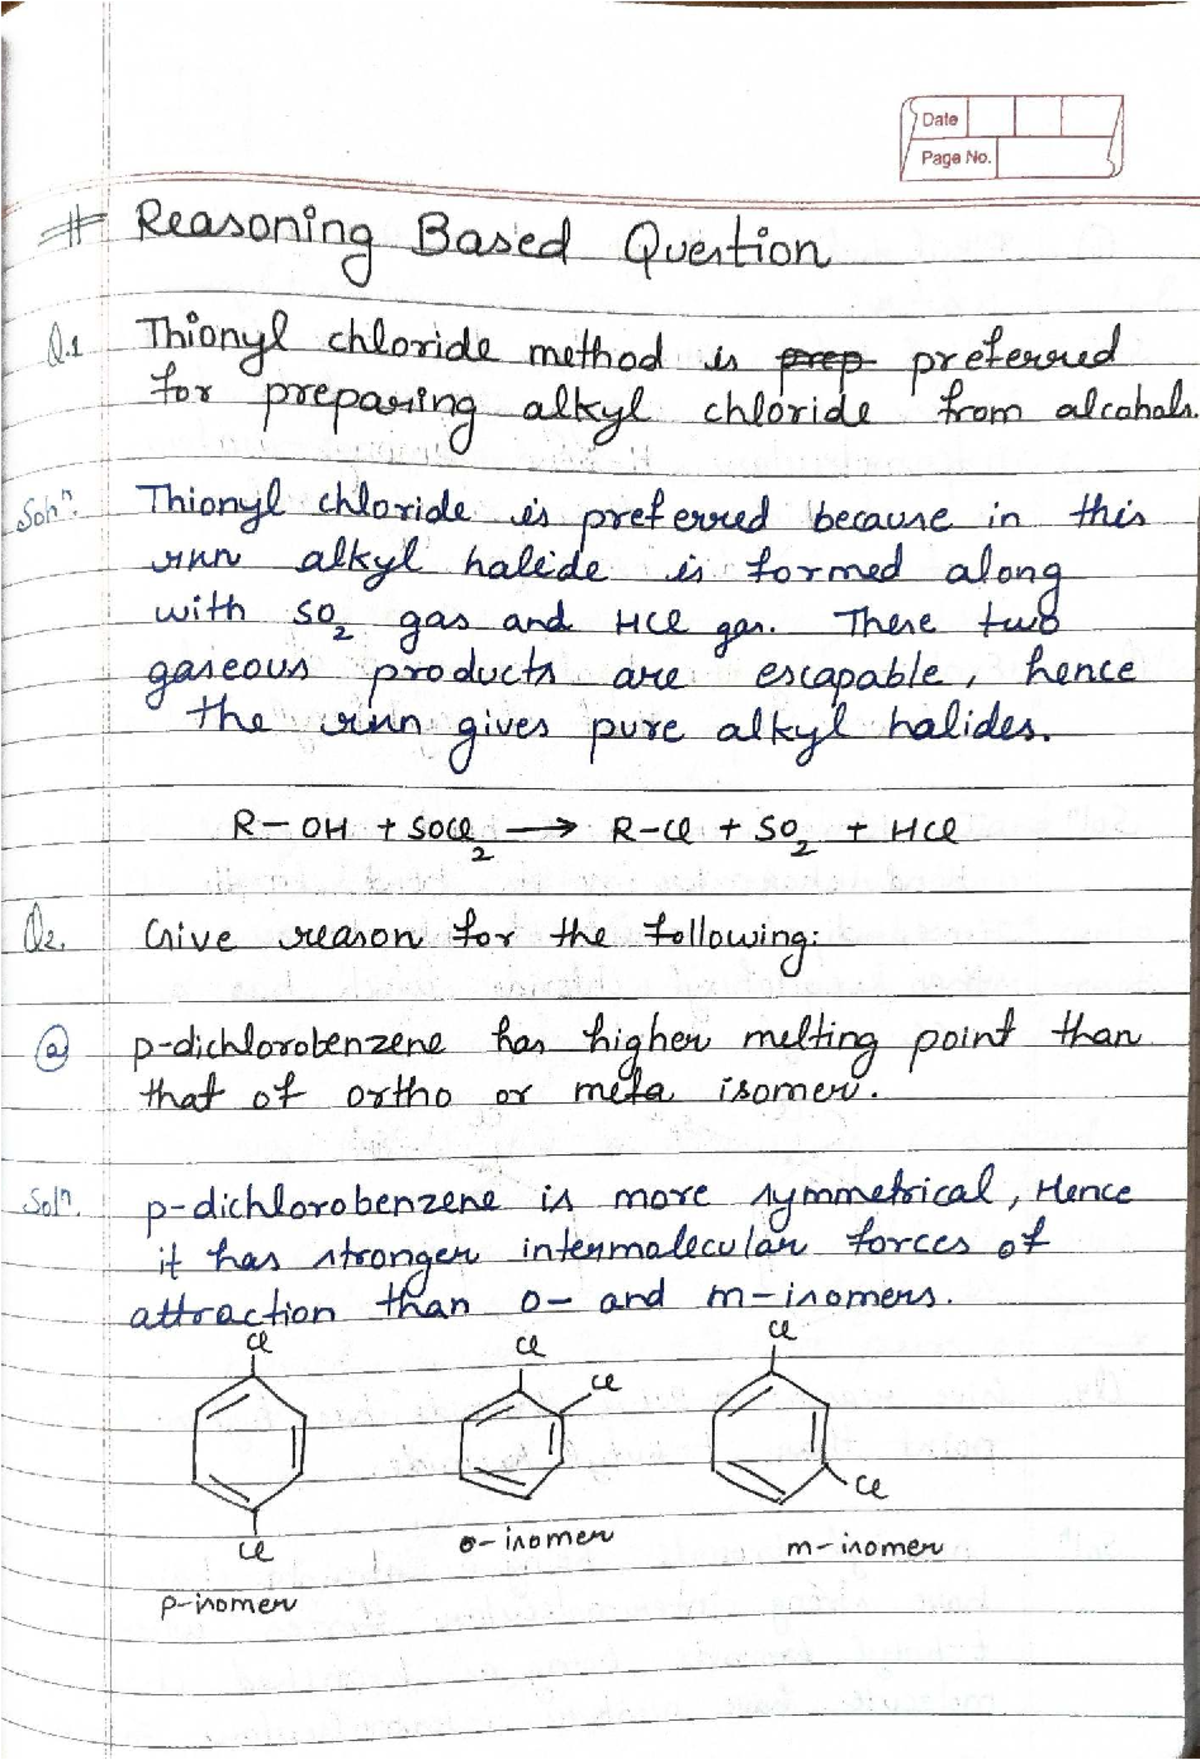 Date
Page No.
# Reasoning Based Question
Q.1 Thionyl chloride method is prep preferred
for preparing alkyl chloride from alcohols.
Solⁿ. Thionyl chloride is preferred because in this
rxn alkyl halide is formed along
with SO₂ gas and HCl gas. These two
gaseous products are escapable, hence
the rxn gives pure alkyl halides.
R–OH + SOCl₂ → R–Cl + SO₂ + HCl
Q2. Give reason for the following:
(a) p-dichlorobenzene has higher melting point than
that of ortho or meta isomer.
Solⁿ. p-dichlorobenzene is more symmetrical, Hence
it has stronger intermolecular forces of
attraction than o– and m–isomers.
Cl
Cl
Cl
Cl
Cl
Cl
o–isomer
m–isomer
p-isomer